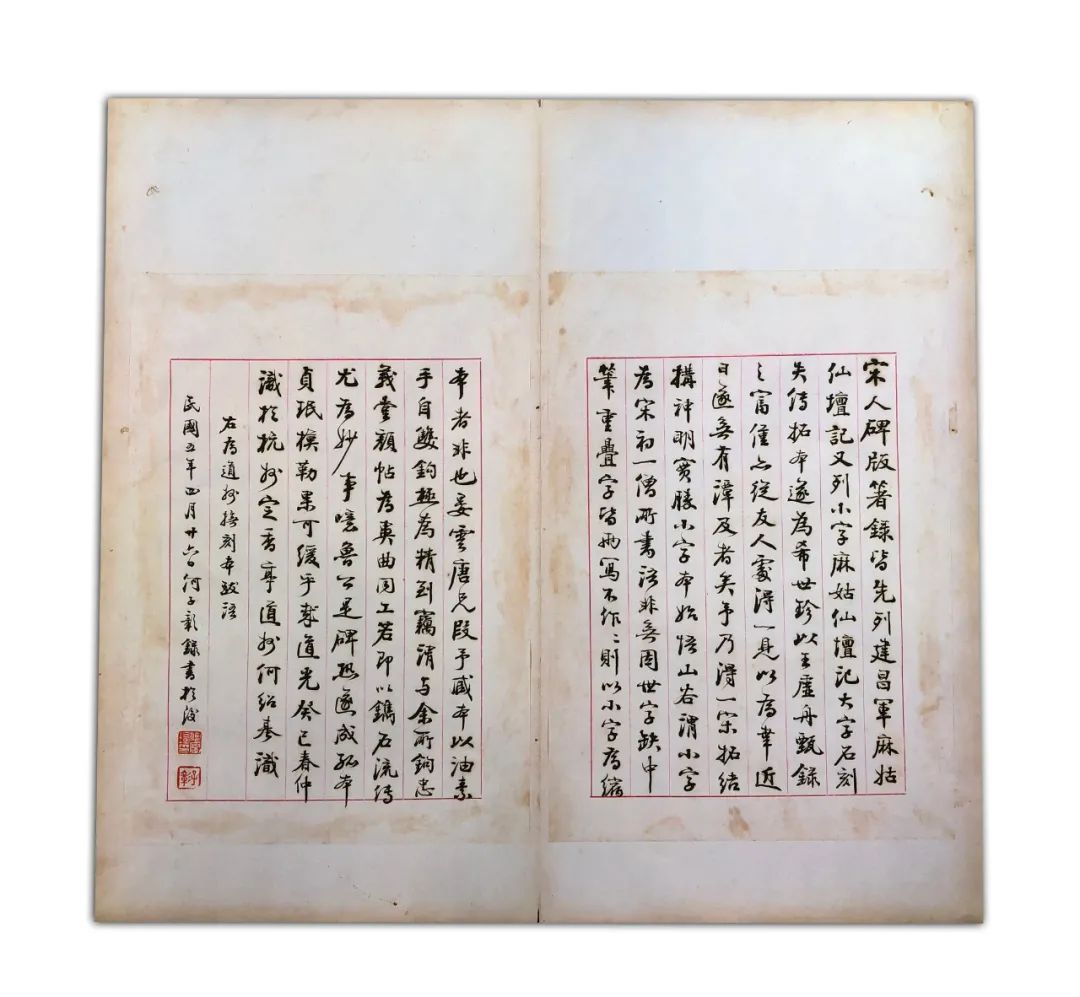 宋人碑版箸録皆先列建昌軍麻姑
仙壇記又列小字麻姑仙壇記大字石刻
失傳拓本遂為希世珍以王虛舟甄録
之富僅亦從友人處得一見以為幸近
日遂無有談及者矣予乃得一宋拓結
構神明實勝小字本始悟山谷謂小字
為宋初一僧所書語非無因世字缺中
筆重疊字皆兩寫不作二則以小字為縮
本者非也晏雲唐兄段予臧本以油素
手自雙鈎極為精到竊謂與余所鈎忠
義堂顏帖為異曲同工若即以鐫石流傳
尤為妙事噫魯公是碑恐遂成孤本
貞珉模勒果可緩乎哉道光癸巳春仲
識於杭州定香亭道州何紹基識
右為道州技刻本跋語
民國五年四月廿六日何子彰録書於後